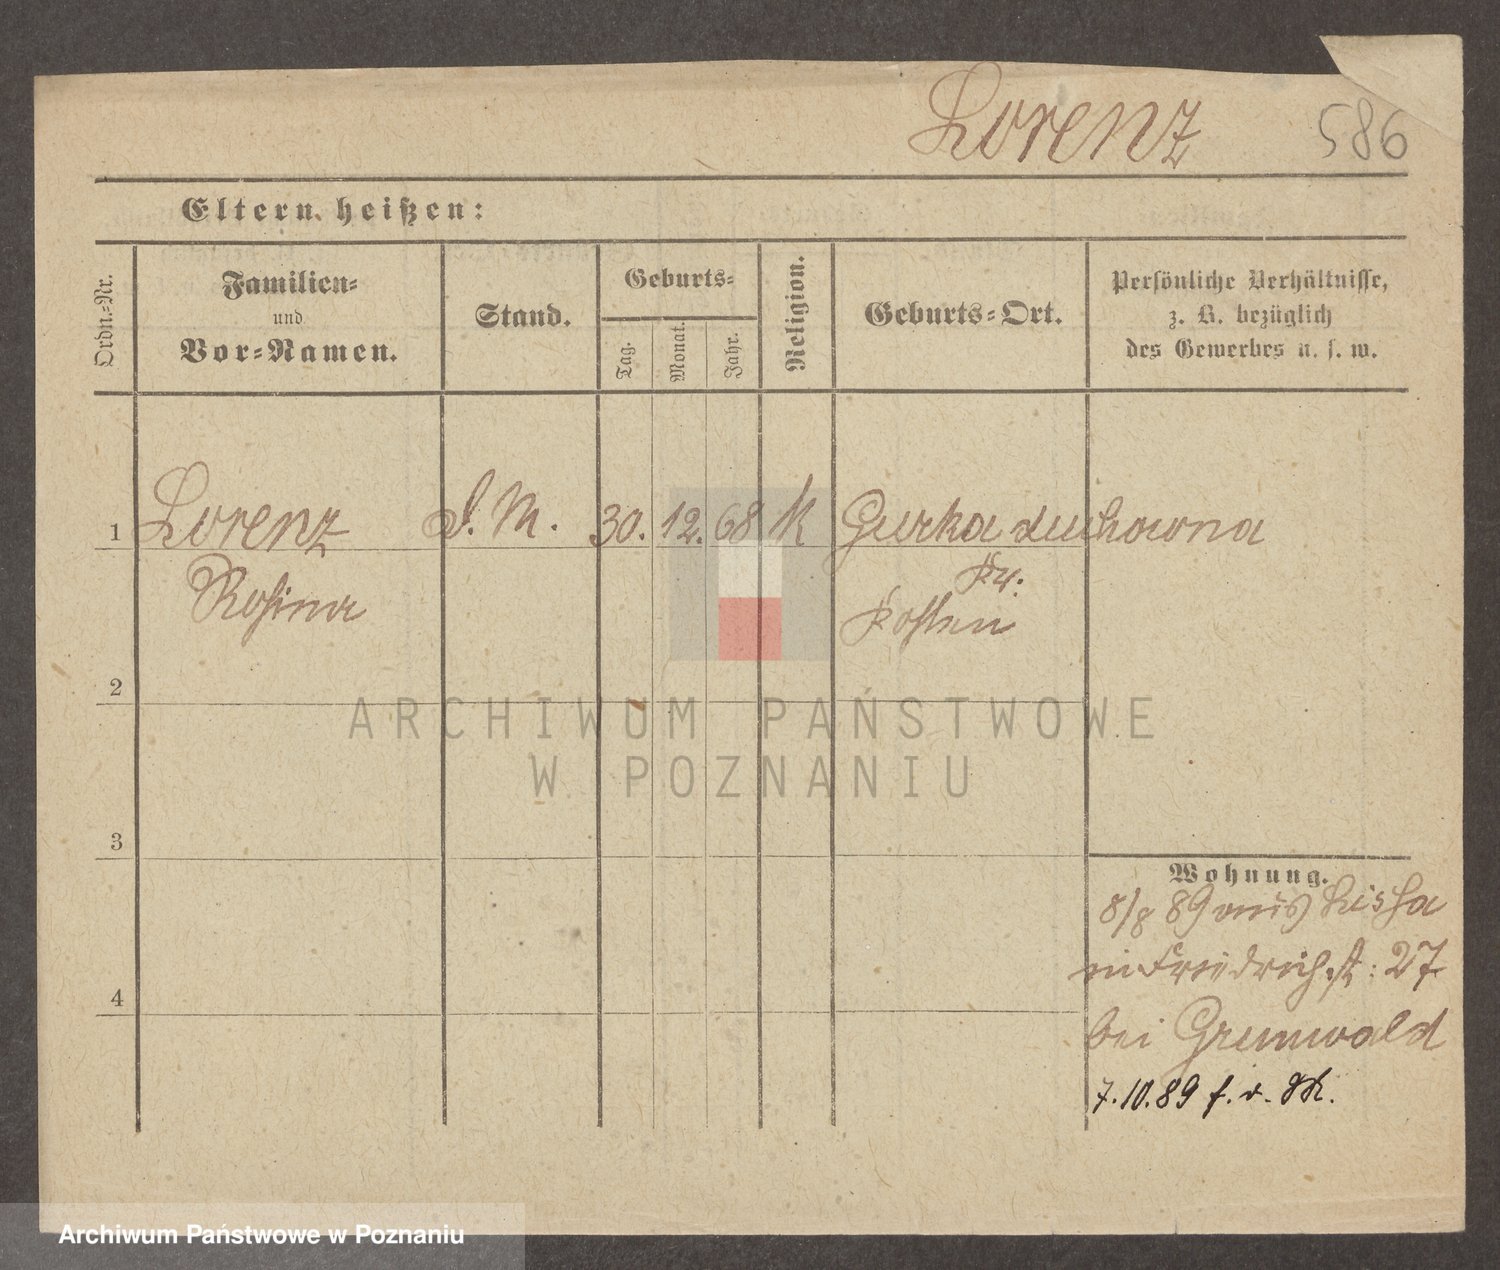 Lorenz 586
Eltern heißen:
Ordn.-Nr.
Familien-
und
Vor-Namen.
Stand.
Geburts-
Tag.
Monat.
Jahr.
Religion.
Geburts-Ort.
Persönliche Verhältnisse,
z. B. bezüglich
des Gewerbes u. s. w.
1 Lorenz D. M. 30. 12. 68 K Gurka duchowna
Rosina
Kr.
Kosten
2
3
4
Wohnung.
8/8 89 aus Lissa
in Friedrichst: 27
bei Grunwald
7.10.89 f. v.
ARCHIWUM PAŃSTWOWE
W POZNANIU
Archiwum Państwowe w Poznaniu